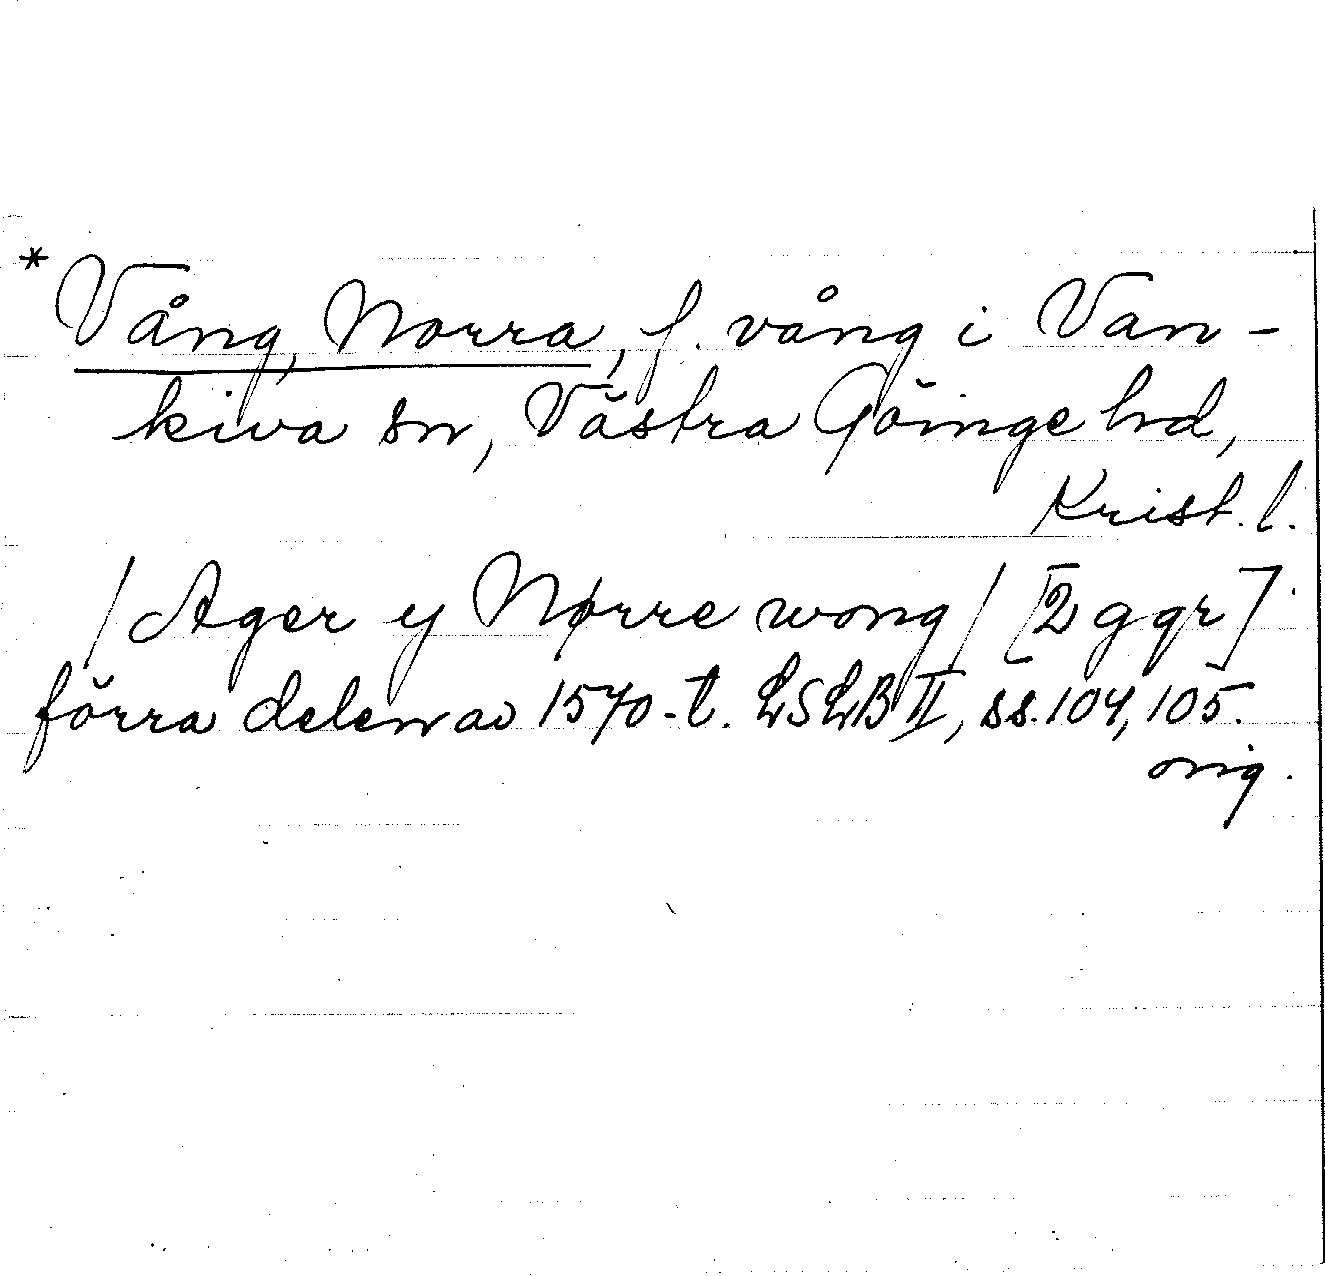 * Vång, Norra, f. vång i Van-
kiva sn, Västra Göinge hd,
Krist. l.
/Ager y Nørre wong/ [2 ggr]
förra delen av 1570-t. LSLB II, ss. 104, 105.
orig.